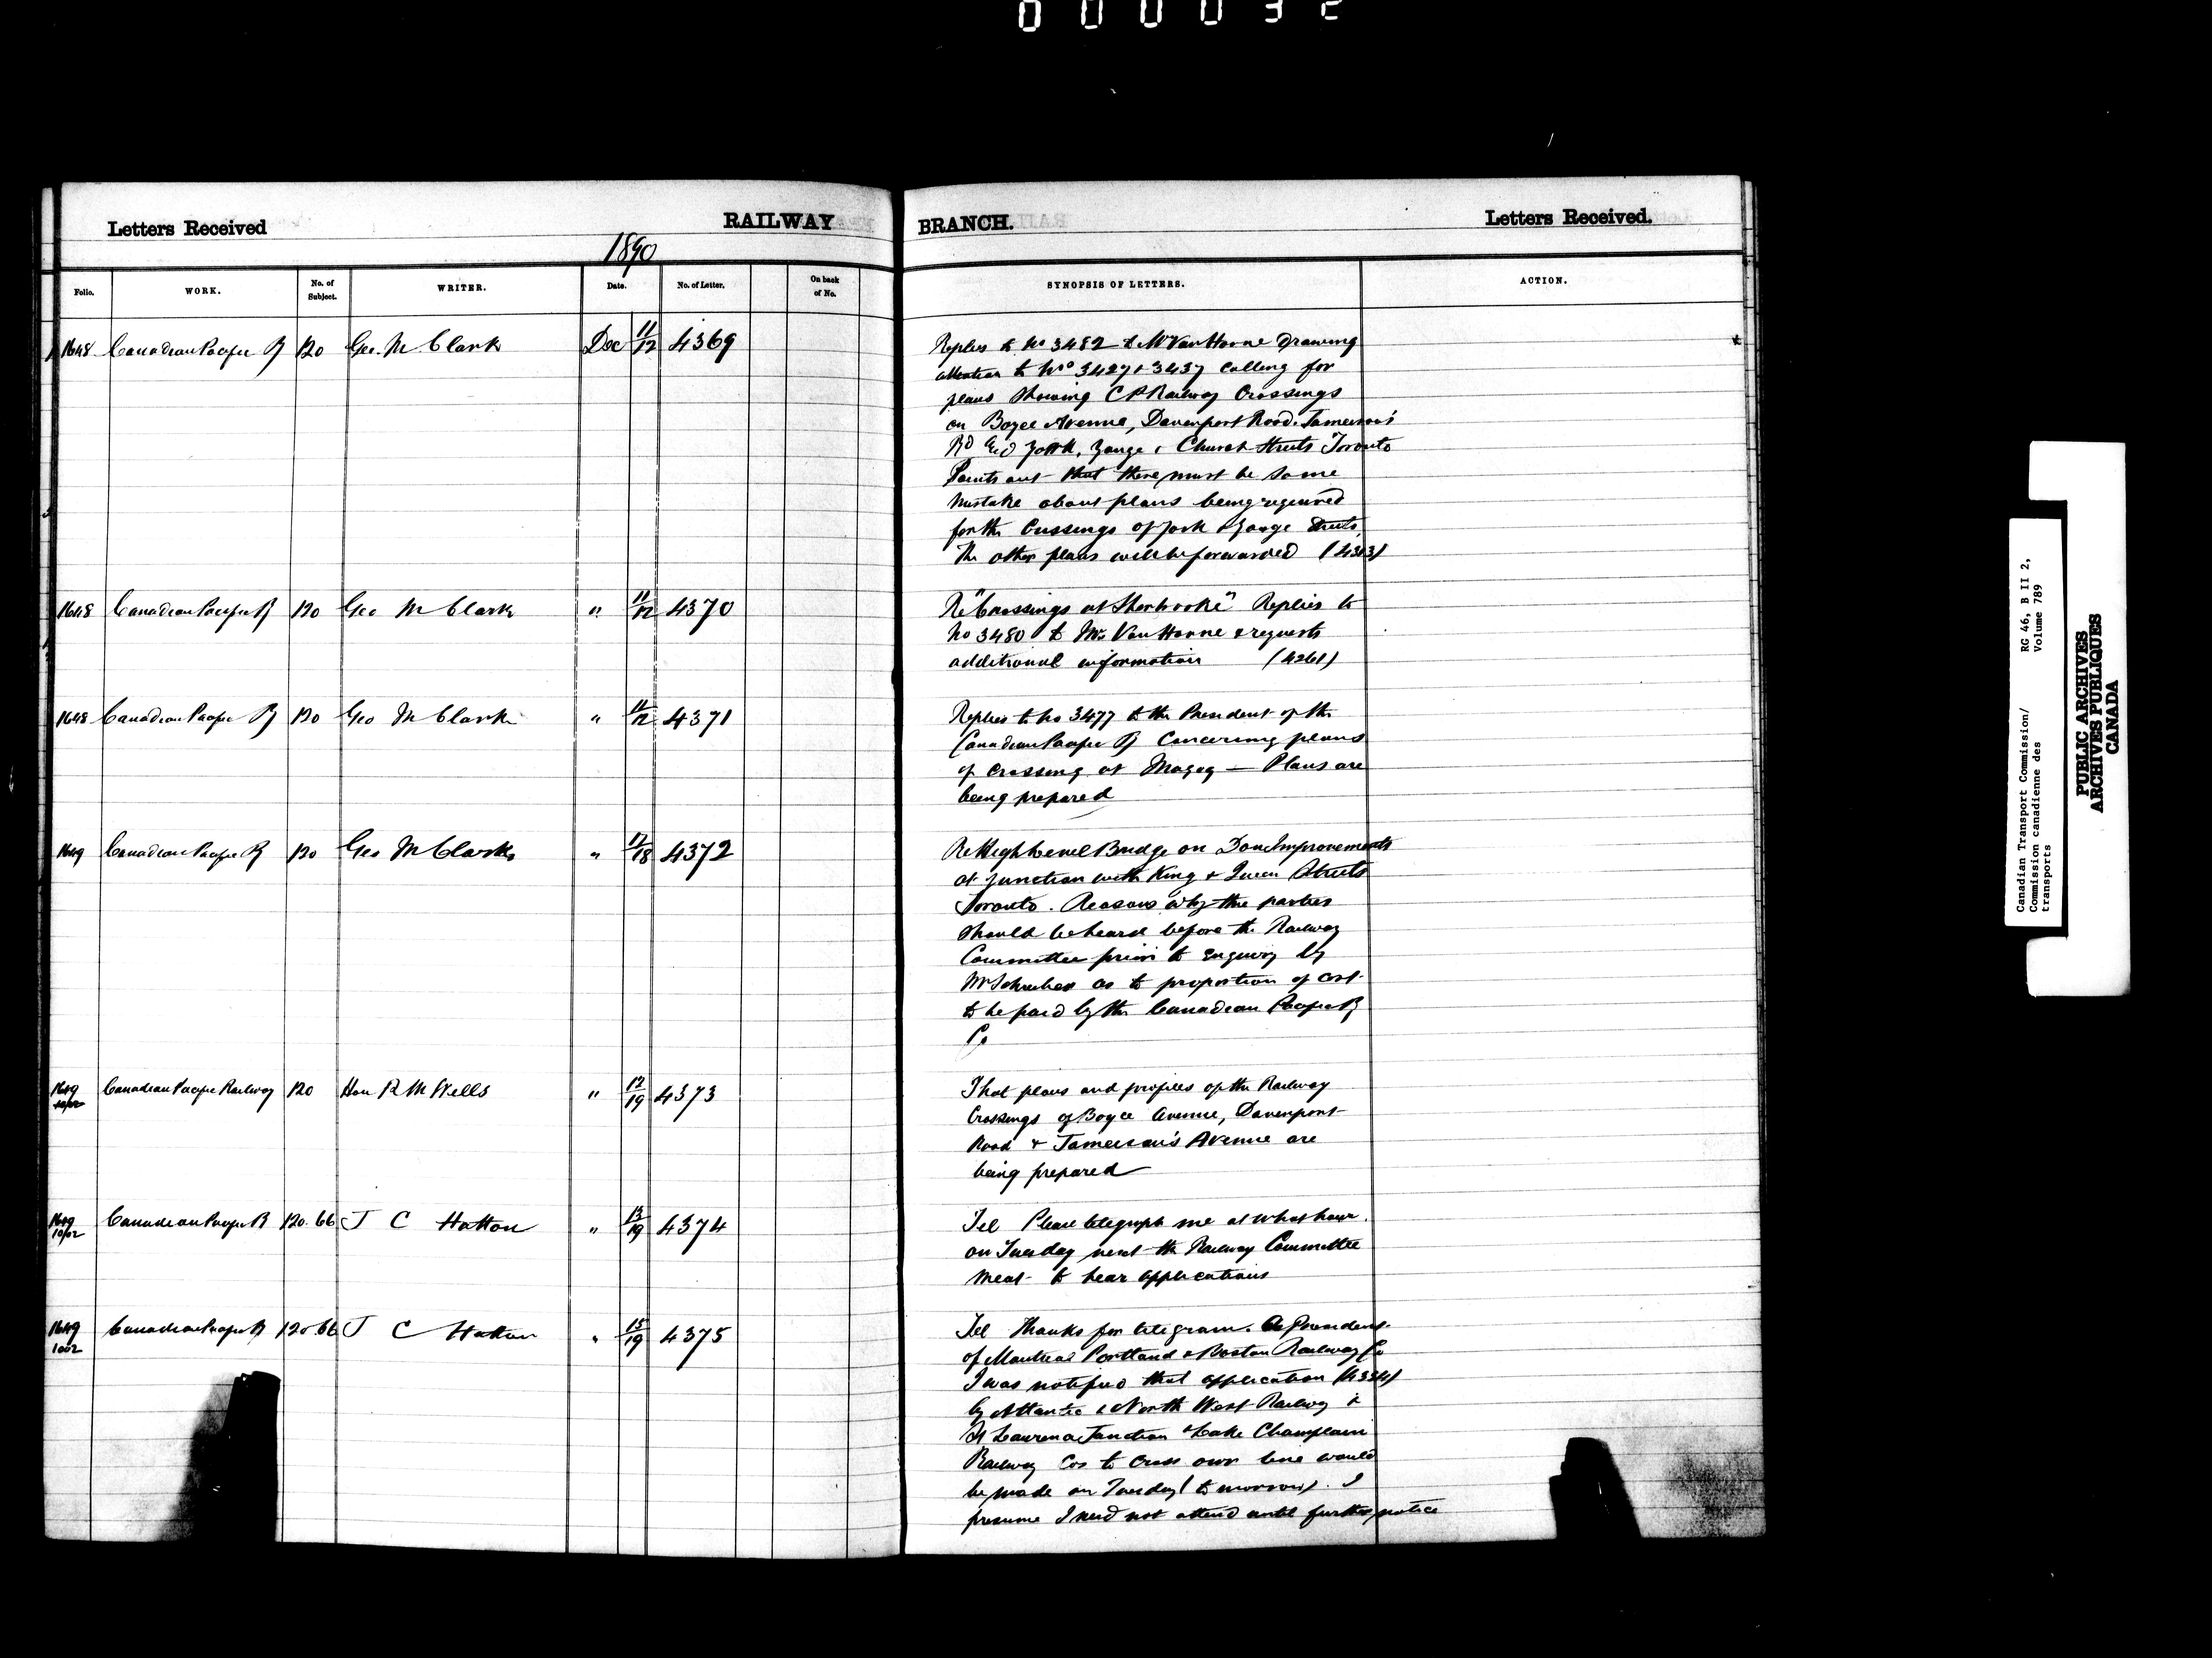 000032
Letters Received RAILWAY BRANCH. Letters Received.
1890
Folio. WORK. No. of Subject. WRITER. Date. No. of Letter. On back of No. SYNOPSIS OF LETTERS. ACTION.
1648 Canadian Pacific Ry 120 Geo. M Clark Dec 11/12 4369
Replies to No 3482 to Mr Van Horne drawing
attention to Nos 3427 & 3437 calling for
plans showing C P Railway Crossings
on Boyce Avenue, Davenport Road. Jameson's
Rd York, Yonge & Church Streets Toronto
Points out that there must be some
mistake about plans being required
for the Crossings of York & Yonge Streets,
The other plans will be forwarded (4303)
1648 Canadian Pacific Ry 120 Geo M Clark " 11/12 4370
Re "Crossings at Sherbrooke" Replies to
No 3480 to Mr Van Horne & requests
additional information (4261)
1648 Canadian Pacific Ry 120 Geo M Clark " 11/12 4371
Replies to No 3477 to the President of the
Canadian Pacific Ry Concerning plans
of crossing at Magog — Plans are
being prepared
1649 Canadian Pacific Ry 120 Geo M Clark " 12/18 4372
Re High Level Bridge on Don Improvements
at junction with King & Queen Streets
Toronto. Reasons why the parties
should be heard before the Railway
Committee prior to enquiry by
Mr Schreiber as to proportion of cost
to be paid by the Canadian Pacific Ry
Co
1649 Canadian Pacific Railway 120 Hon R M Wells " 12/19 4373
That plans and profiles of the Railway
Crossings of Boyce Avenue, Davenport
Road & Jameson's Avenue are
being prepared
1649 1002 Canadian Pacific R 120.66 J C Hatton " 13/19 4374
Tel Please telegraph me at what hour
on Tuesday next the Railway Committee
meet to hear applications
1649 1002 Canadian Pacific Ry 120.66 J C Hatton " 15/19 4375
Tel Thanks for telegram. As President
of Montreal Portland & Boston Railway Co
I was notified that application (4334)
by Atlantic & North West Railway &
St Lawrence Junction & Lake Champlain
Railway Cos to cross our line would
be made on Tuesday (to morrow). I
presume I need not attend until further notice
Canadian Transport Commission/
Commission canadienne des
transports
RG 46, B II 2,
Volume 789
PUBLIC ARCHIVES
ARCHIVES PUBLIQUES
CANADA